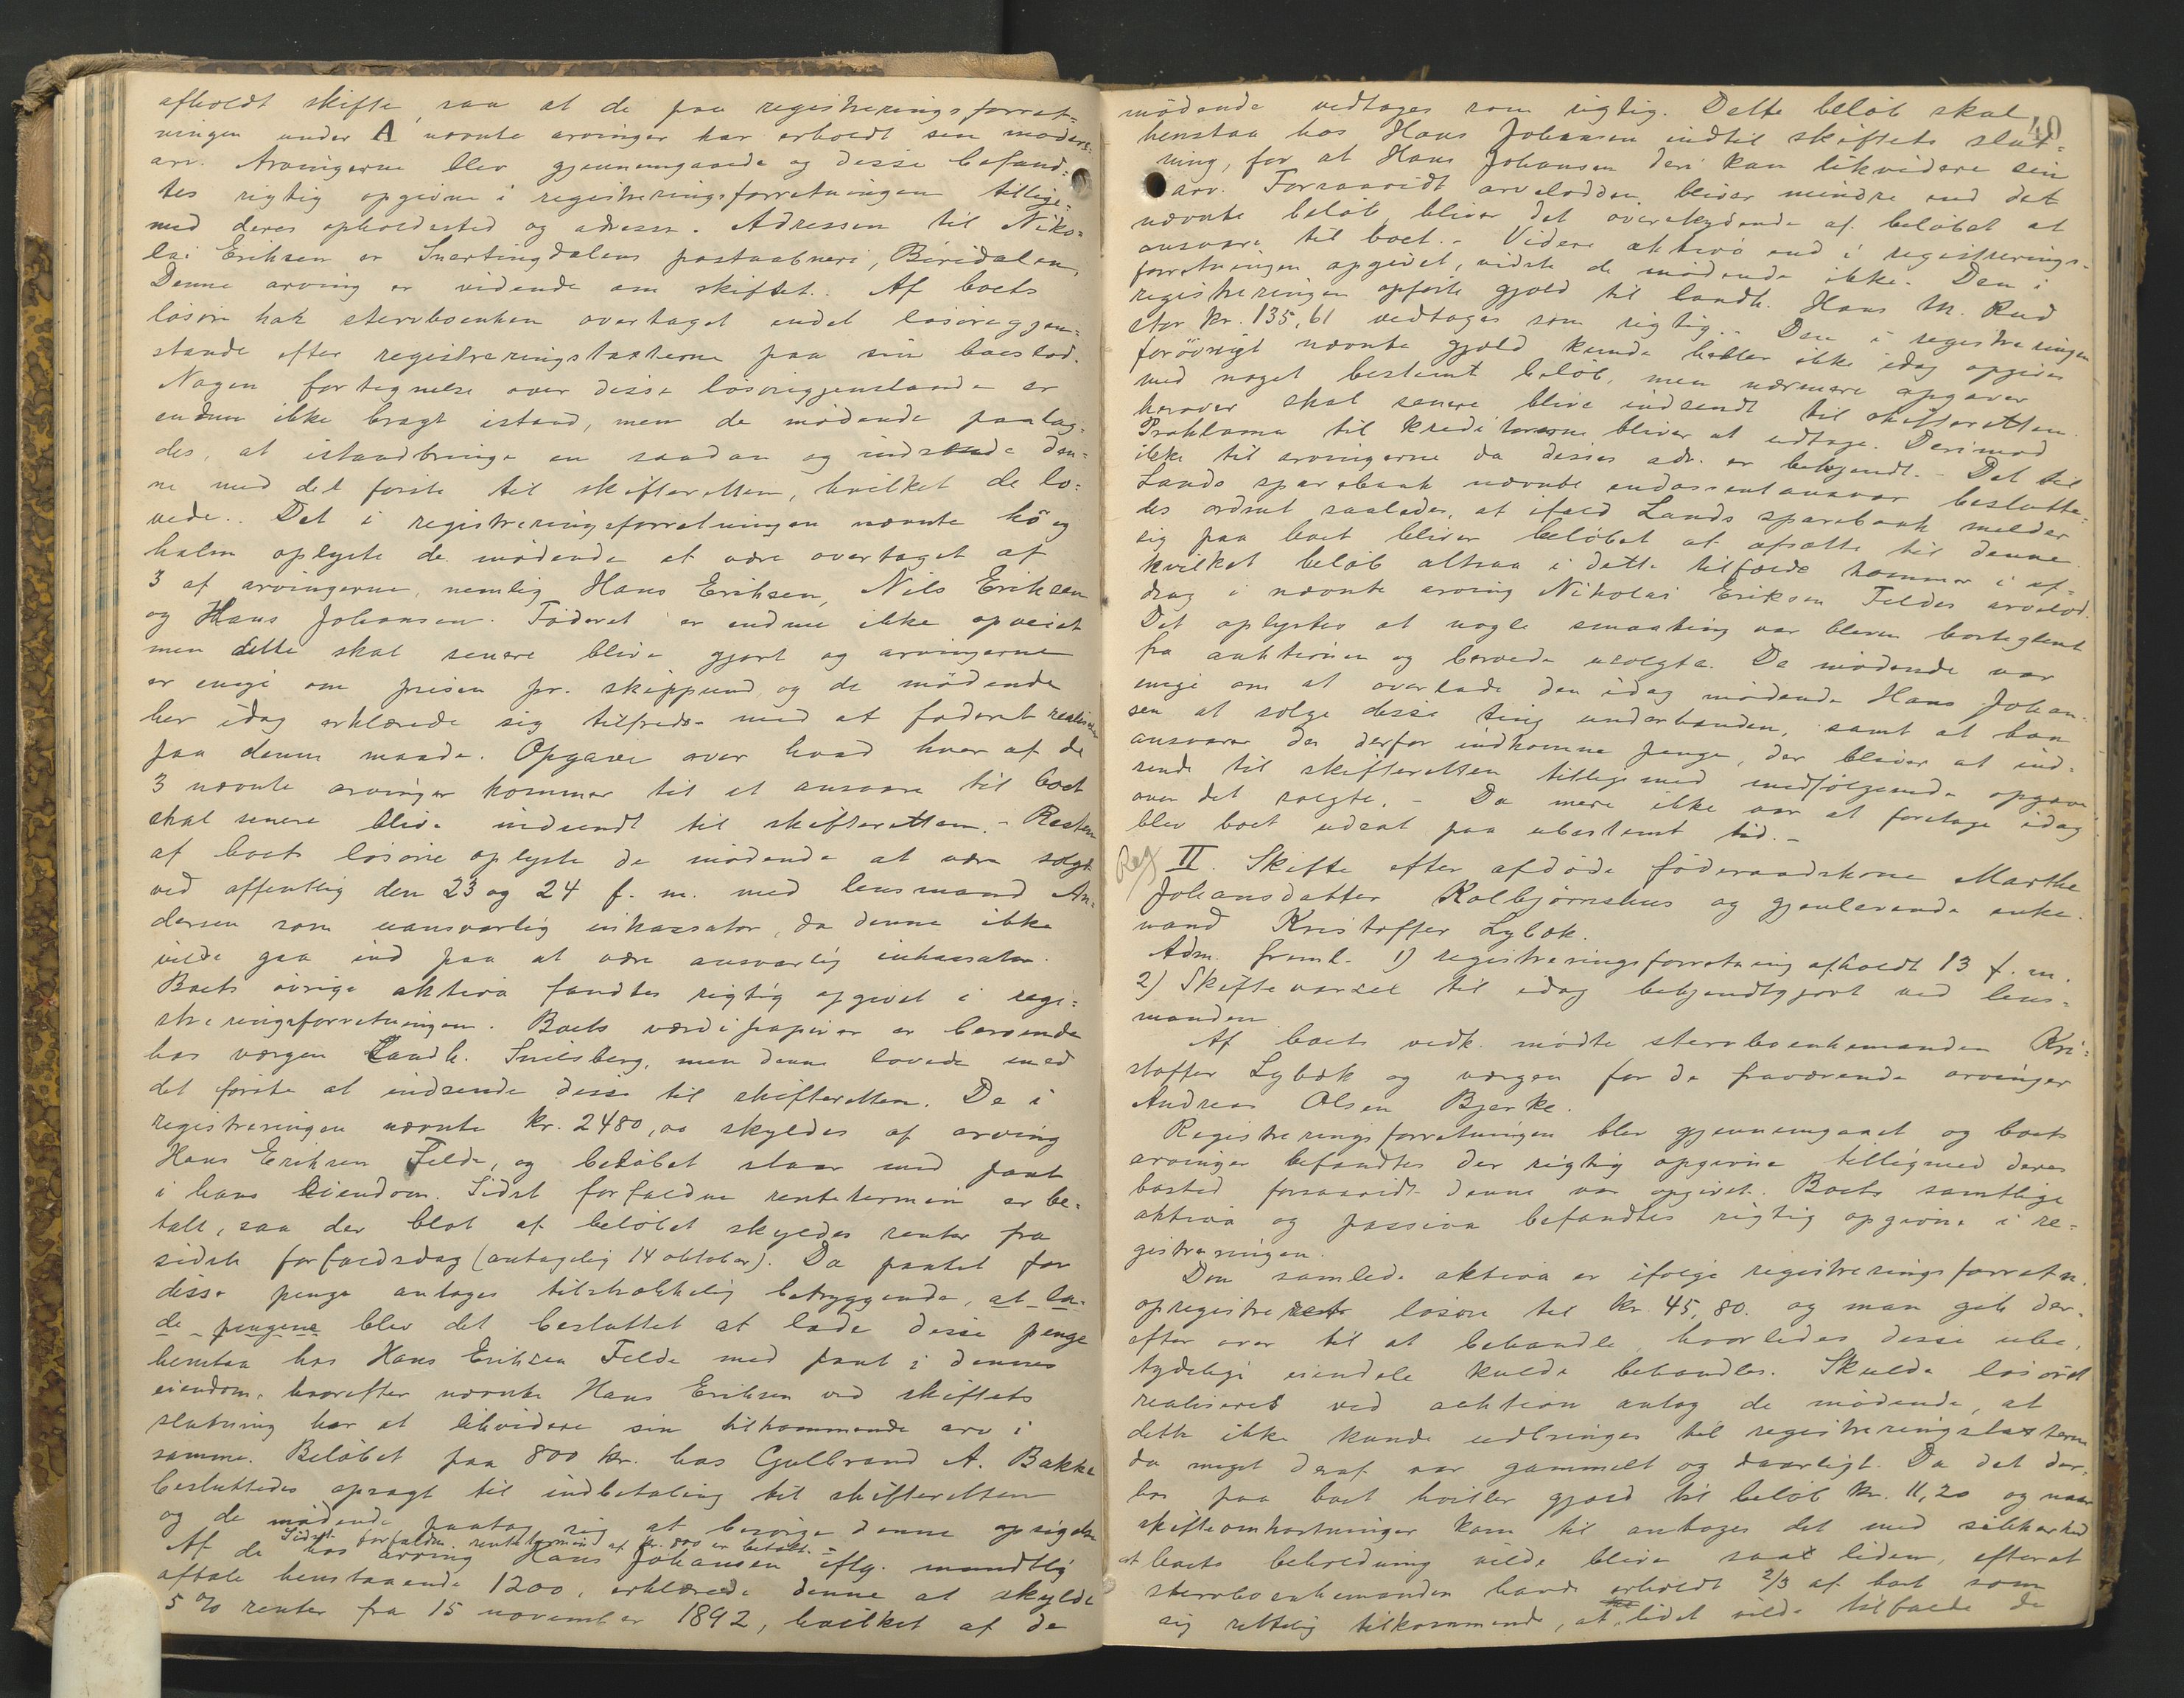 afholdt skifte, saa at de paa registreringsforret=
ningen under A nævnte arvinger har erholdt sin mødre=
arv. Arvingerne blev gjennemgaaede og disse befand=
tes rigtig opgivne i registreringsforretningen tillige=
med deres opholdssted og adresse. Adressen til Niko=
lai Eriksen er Snertingdalens postaabneri, Biridalen,
Denne arving er vidende om skiftet. Af boets
løsøre hak stervboenken overtaget endel løsøregjen=
stande efter registreringstaxterne paa sin boeslod.
Nogen fortegnelse over disse løsøregjenstande er
endnu ikke bragt istand, men de mødende paalag=
des, at istandbringe en saadan og indsende den=
ne med det første til skifteretten, hvilket de lo=
vede. Det i registreringsforretningen nævnte hö og
halm oplyste de mødende at være overtaget af
3 af arvingerne, nemlig Hans Eriksen, Nils Eriksen
og Hans Johansen. Föderet er endnu ikke opveiet
men dette skal senere blive gjort og arvingerne
er enige om prisen pr. skippund og de mødende
her idag erklærede sig tilfreds med at foderet realiseres
paa denne maade. Opgave over hvad hver af de
3 nævnte arvinger kommer til at ansvare til boet
skal senere blive indsendt til skifteretten. - Resten
af boets løsøre oplyste de mødende at være solgt
ved offentlig den 23 og 24 f. m. med lensmand An=
dersen som uansvarlig inkassator, da denne ikke
vilde gaa ind paa at være ansvarlig inkassator.
Boets övrige aktiva fandtes rigtig opgivet i regi=
streringsforretningen. Boets værdipapirer er beroende
hos værgen Landh. Snilsberg, men denne lovede med
det første at indsende disse til skifteretten. De i
registreringen nævnte kr. 2480,00 skyldes af arving
Hans Eriksen Felde, og beløbet staar med pant
i hans eiendom. Sidst forfaldne rentetermin er be=
talt, saa der blot af beløbet skyldes renter fra
sidste forfaldsdag (antagelig 14 oktober). Da pantet for
disse penge antages tilstrækkelig betryggende, at la=
de pengene blev det besluttet at lade disse penge
henstaa hos Hans Eriksen Felde med pant i dennes
eiendom, hvorefter nævnte Hans Eriksen ved skiftets
slutning har at likvidere sin tilkommende arv i
samme. Beløbet paa 800 kr. hos Gulbrand A. Bakke
besluttedes opsagt til indbetaling til skifteretten
og de mødende paatog sig at besørge denne opsigelse
Sidst forfaldne rentetermin af kr. 800 er betalt. -
Af de hos arving Hans Johansen iflg. mundtlig
aftale henstaaende 1200, erklærede denne at skylde
5 % renter fra 15 november 1892, hvilket af de
40
mödende vedtoges som rigtig. Dette beløb skal
henstaa hos Hans Johansen indtil skiftets slut=
ning, for at Hans Johansen deri kan likvidere sin
arv. Forsaavidt arvelodden bliver mindre end det
nævnte beløb, bliver det overskydende af beløbet at
ansvare til boet. - Videre aktiva end i registrerings-
forretningen opgivet, vidste de mødende ikke. Den i
registreringen opførte gjæld til landh. Hans M. Rud
stor kr. 135,61 vedtoges som rigtig. - Den i registreringen
forövrigt nævnte gjæld kunde heller ikke idag opgives
med noget bestemt beløb, men nærmere opgaver
herover skal senere blive indsendt til skifteretten.
Proklama til kreditorerne bliver at udtage. Derimod
ikke til arvingerne da disses adr. er bekjendt. - Det til
Lands sparebank nævnte endossentansvar beslutte=
des ordnet saaledes, at ifald Lands sparebank melder
sig paa boet bliver beløbet at afsætte til denne
hvilket beløb altsaa i dette tilfælde kommer i af=
drag i nævnte arving Nikolai Eriksen Feldes arvelod.
Det oplystes at nogle smaating var bleven bortglemt
fra auktionen og beroede usolgte. De mødende var
enige om at overlade den idag mødende Hans Johan=
sen at sælge disse ting underhanden, samt at han
ansvarer de derfor indkomne penge, der bliver at ind=
sende til skifteretten tilligemed medfölgende opgave
over det solgte. - Da mere ikke var at foretage idag
blev boet udsat paa ubestemt tid. -
Reg II. Skifte efter afdöde föderaadskone Marthe
Johansdatter Kolbjørnshus og gjenlevende enke=
mand Kristoffer Lybæk.
Adm. freml. 1) registreringsforretning afholdt 13 f. m.
2) Skiftevarsel til idag bekjendtgjort ved lens=
manden
Af boets vedk. mödte stervboenkemanden Kri=
stoffer Lybæk og værgen for de fraværende arvinger
Andreas Olsen Bjerke.
Registreringsforretningen blev gjennemgaaet og boets
arvinger befandtes der rigtig opgivne tilligemed deres
bosted forsaavidt denne var opgivet. Boets samtlige
aktiva og passiva befandtes rigtig opgivne i re=
gistreringen.
Den samlede aktiva er ifølge registreringsforretn.
opregistreret løsøre til kr. 45,80. og man gik der=
efter over til at behandle hvorledes disse ube=
tydelige eiendele kulde behandles. Skulde løsöret
realiseres ved auktion antog de mödende, at
dette ikke kunde udbringes til registreringstaxterne
da meget deraf var gammelt og daarligt. Da det der=
hos paa boet hviler gjæld til beløb kr. 11,20 og naar
skifteomkostninger kom til antoges det med sikkerhed
at boets beholdning vilde blive saa liden, efterat
stervboenkemanden havde erholdt 2/3 af boet som
sig rettelig tilkommende, at lidet vilde tilfalde de